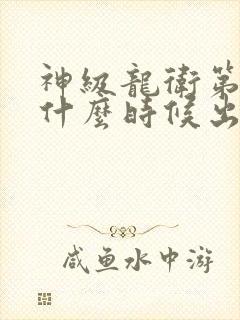 神级龍衛第
什麼時候出
咸鱼水中游